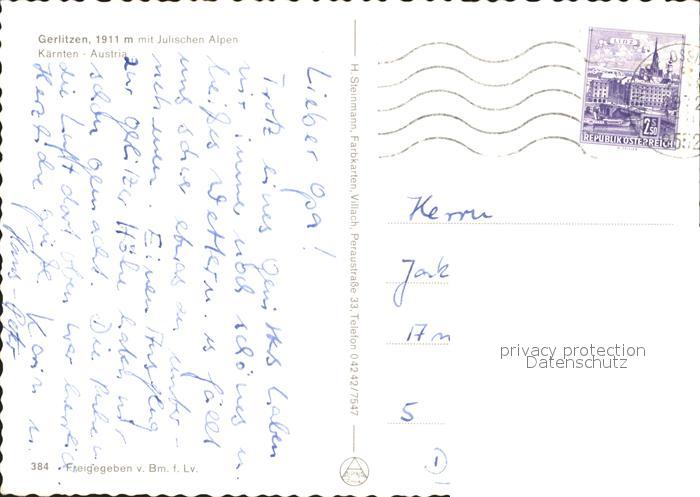 Gerlitzen, 1911 m mit Julischen Alpen
Kärnten - Austria
Lieber Opa!
Trotz eines Gewitters haben
wir immer noch schönes u.
heißes Wetter u. es fällt
uns schwer etwas zu unter-
nehmen. Einen Ausflug
zur Gerlitzer Höhe haben wir
schon gemacht. Die Ruhe u.
die Luft dort oben war herrlich.
Herzliche Grüße Karin u.
Hans-Peter
384 Freigegeben v. Bm. f. Lv.
H. Steinmann, Farbkarten, Villach, Peraustraße 33, Telefon 04242/7547
LINZ
2S50
REPUBLIK ÖSTERREICH
Herrn
Jak
Am
5
privacy protection
Datenschutz